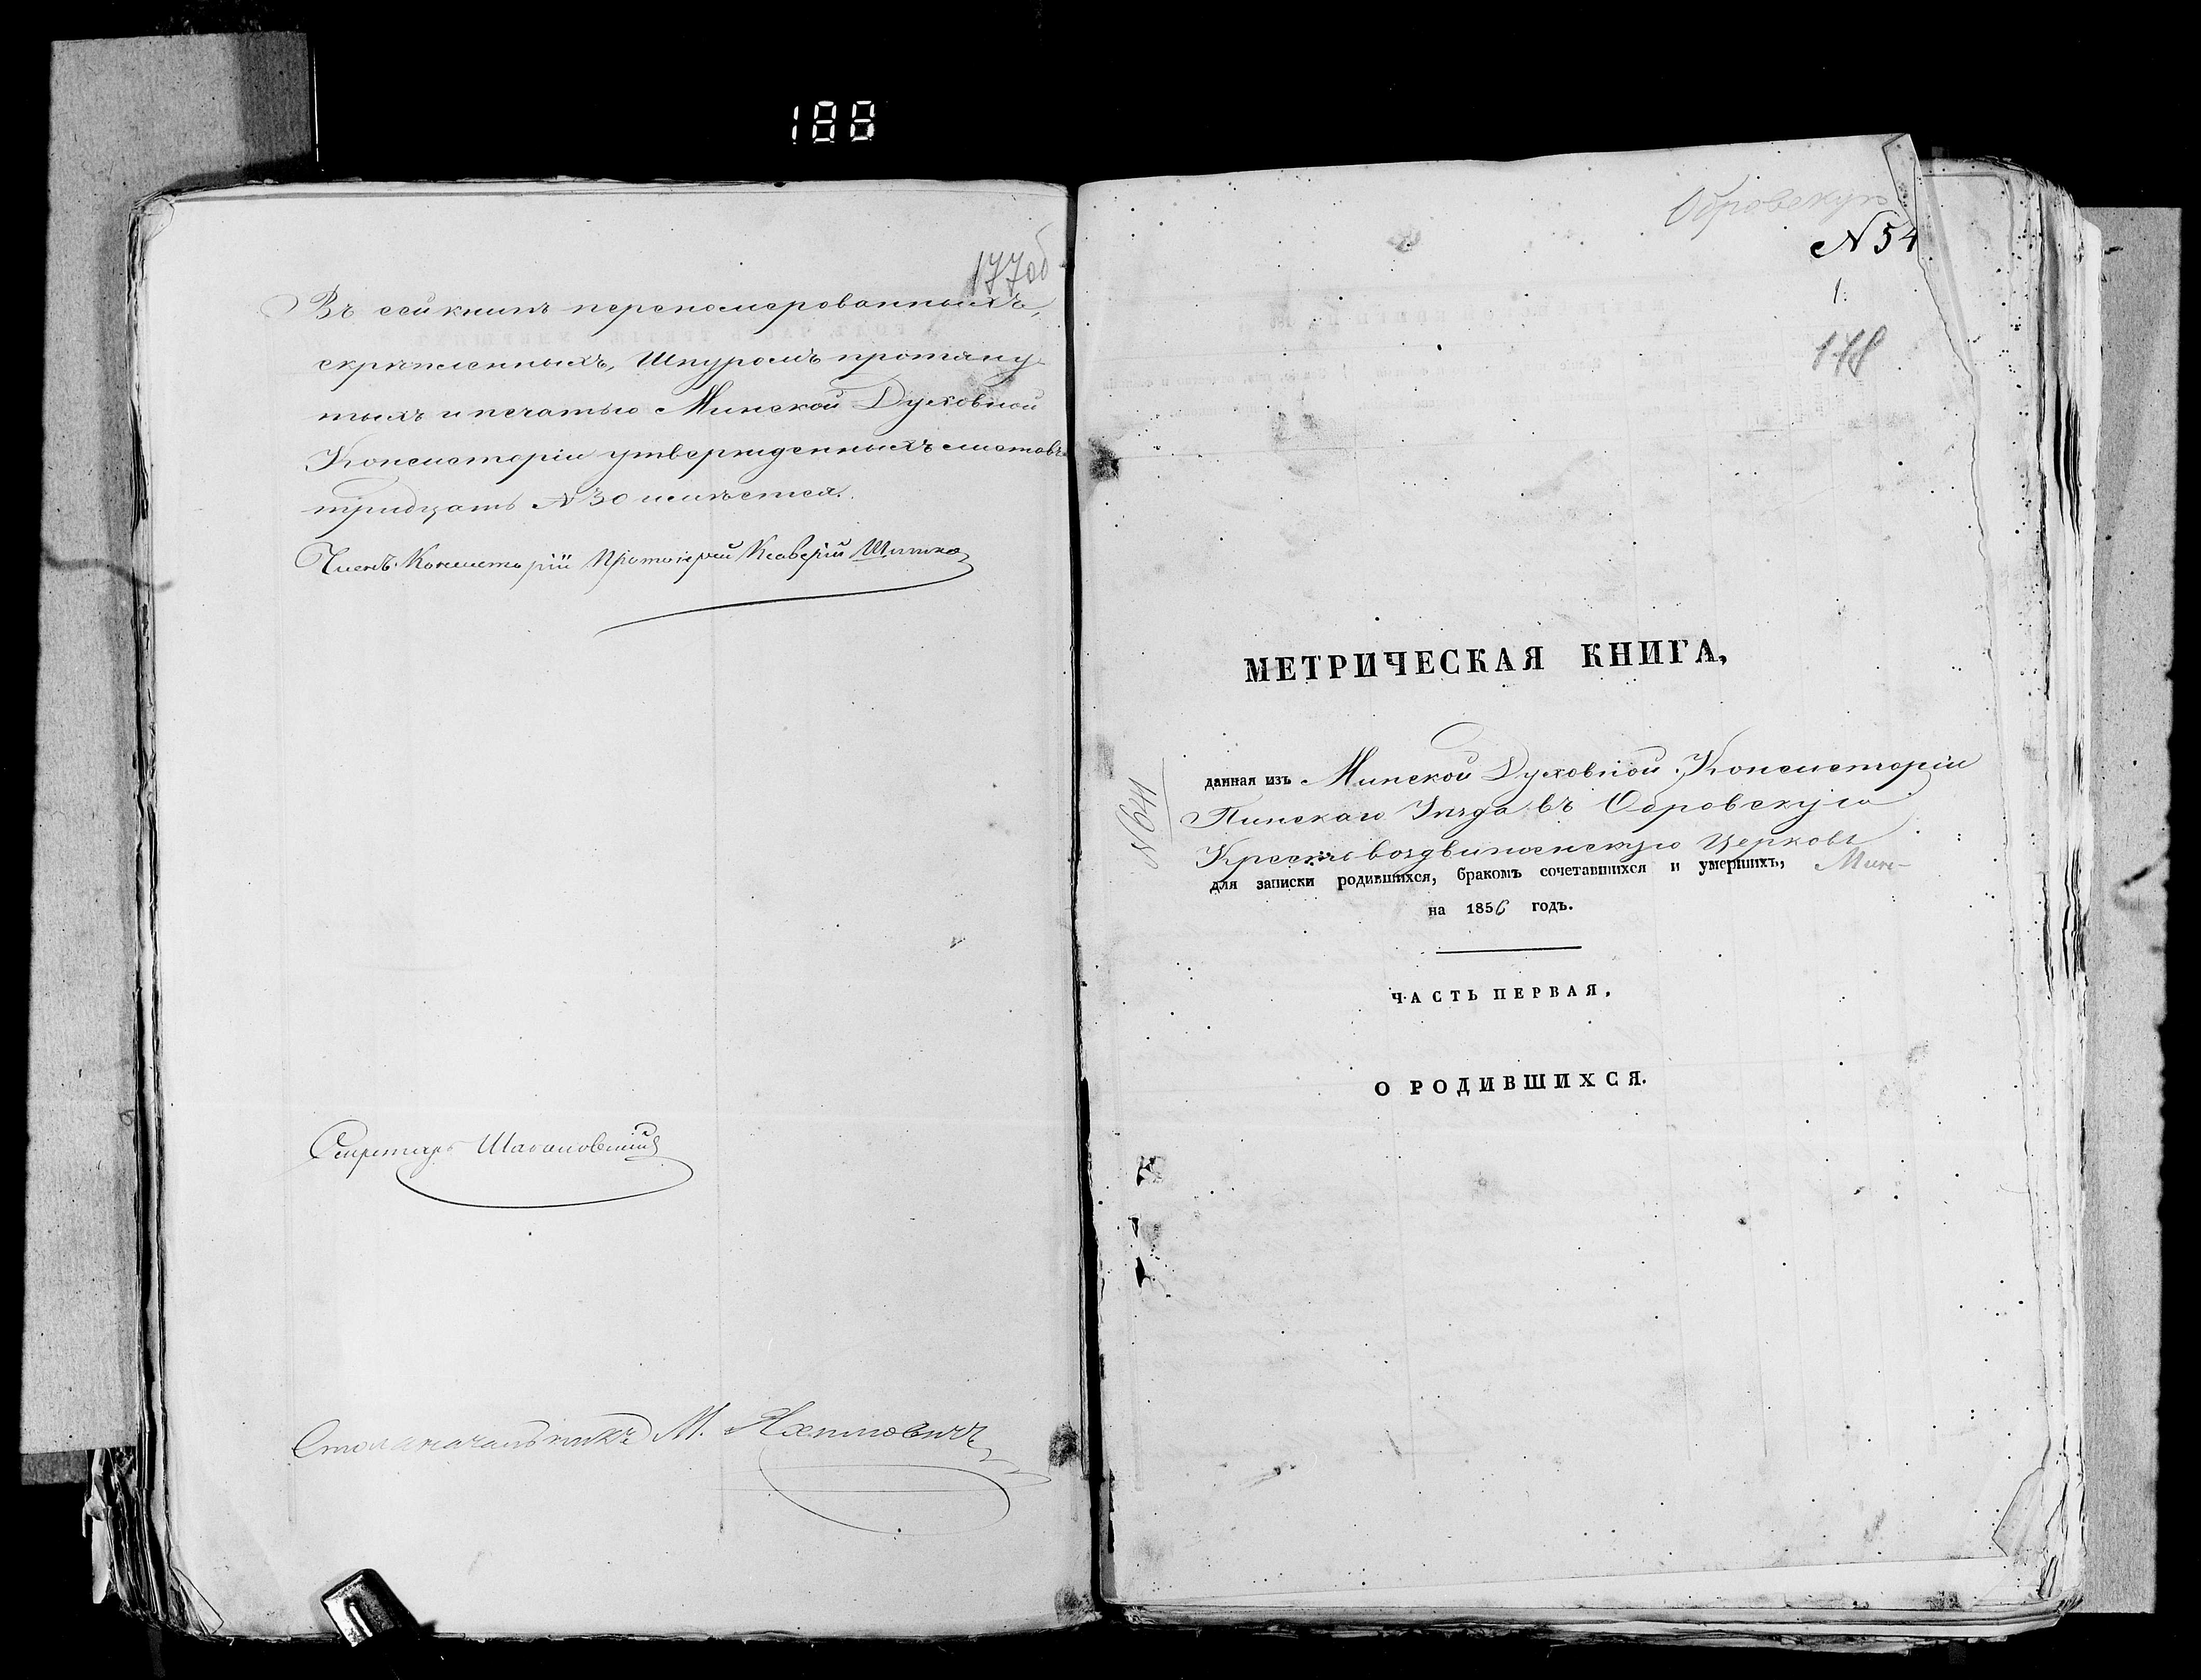 188
177об
Въ сей книгѣ перенумерованныхъ,
скрѣпленныхъ, Шнуромъ протяну-
тыхъ и печатью Минской Духовной
Консисторіи утвержденныхъ листовъ
тридцать №30 имѣется.
Членъ Консисторіи Протоіерей Ксаверій
Секретарь
Столоначальникъ М. Яхимовичъ
Обровскую
№ 54
1.
178
МЕТРИЧЕСКАЯ КНИГА,
данная изъ Минской Духовной Консисторіи
Пинскаго Уѣзда въ Обровскую
Крестовоздвиженскую Церковь
для записки родившихся, бракомъ сочетавшихся и умершихъ, Мин-
на 1856 годъ.
ЧАСТЬ ПЕРВАЯ,
О РОДИВШИХСЯ.
№641